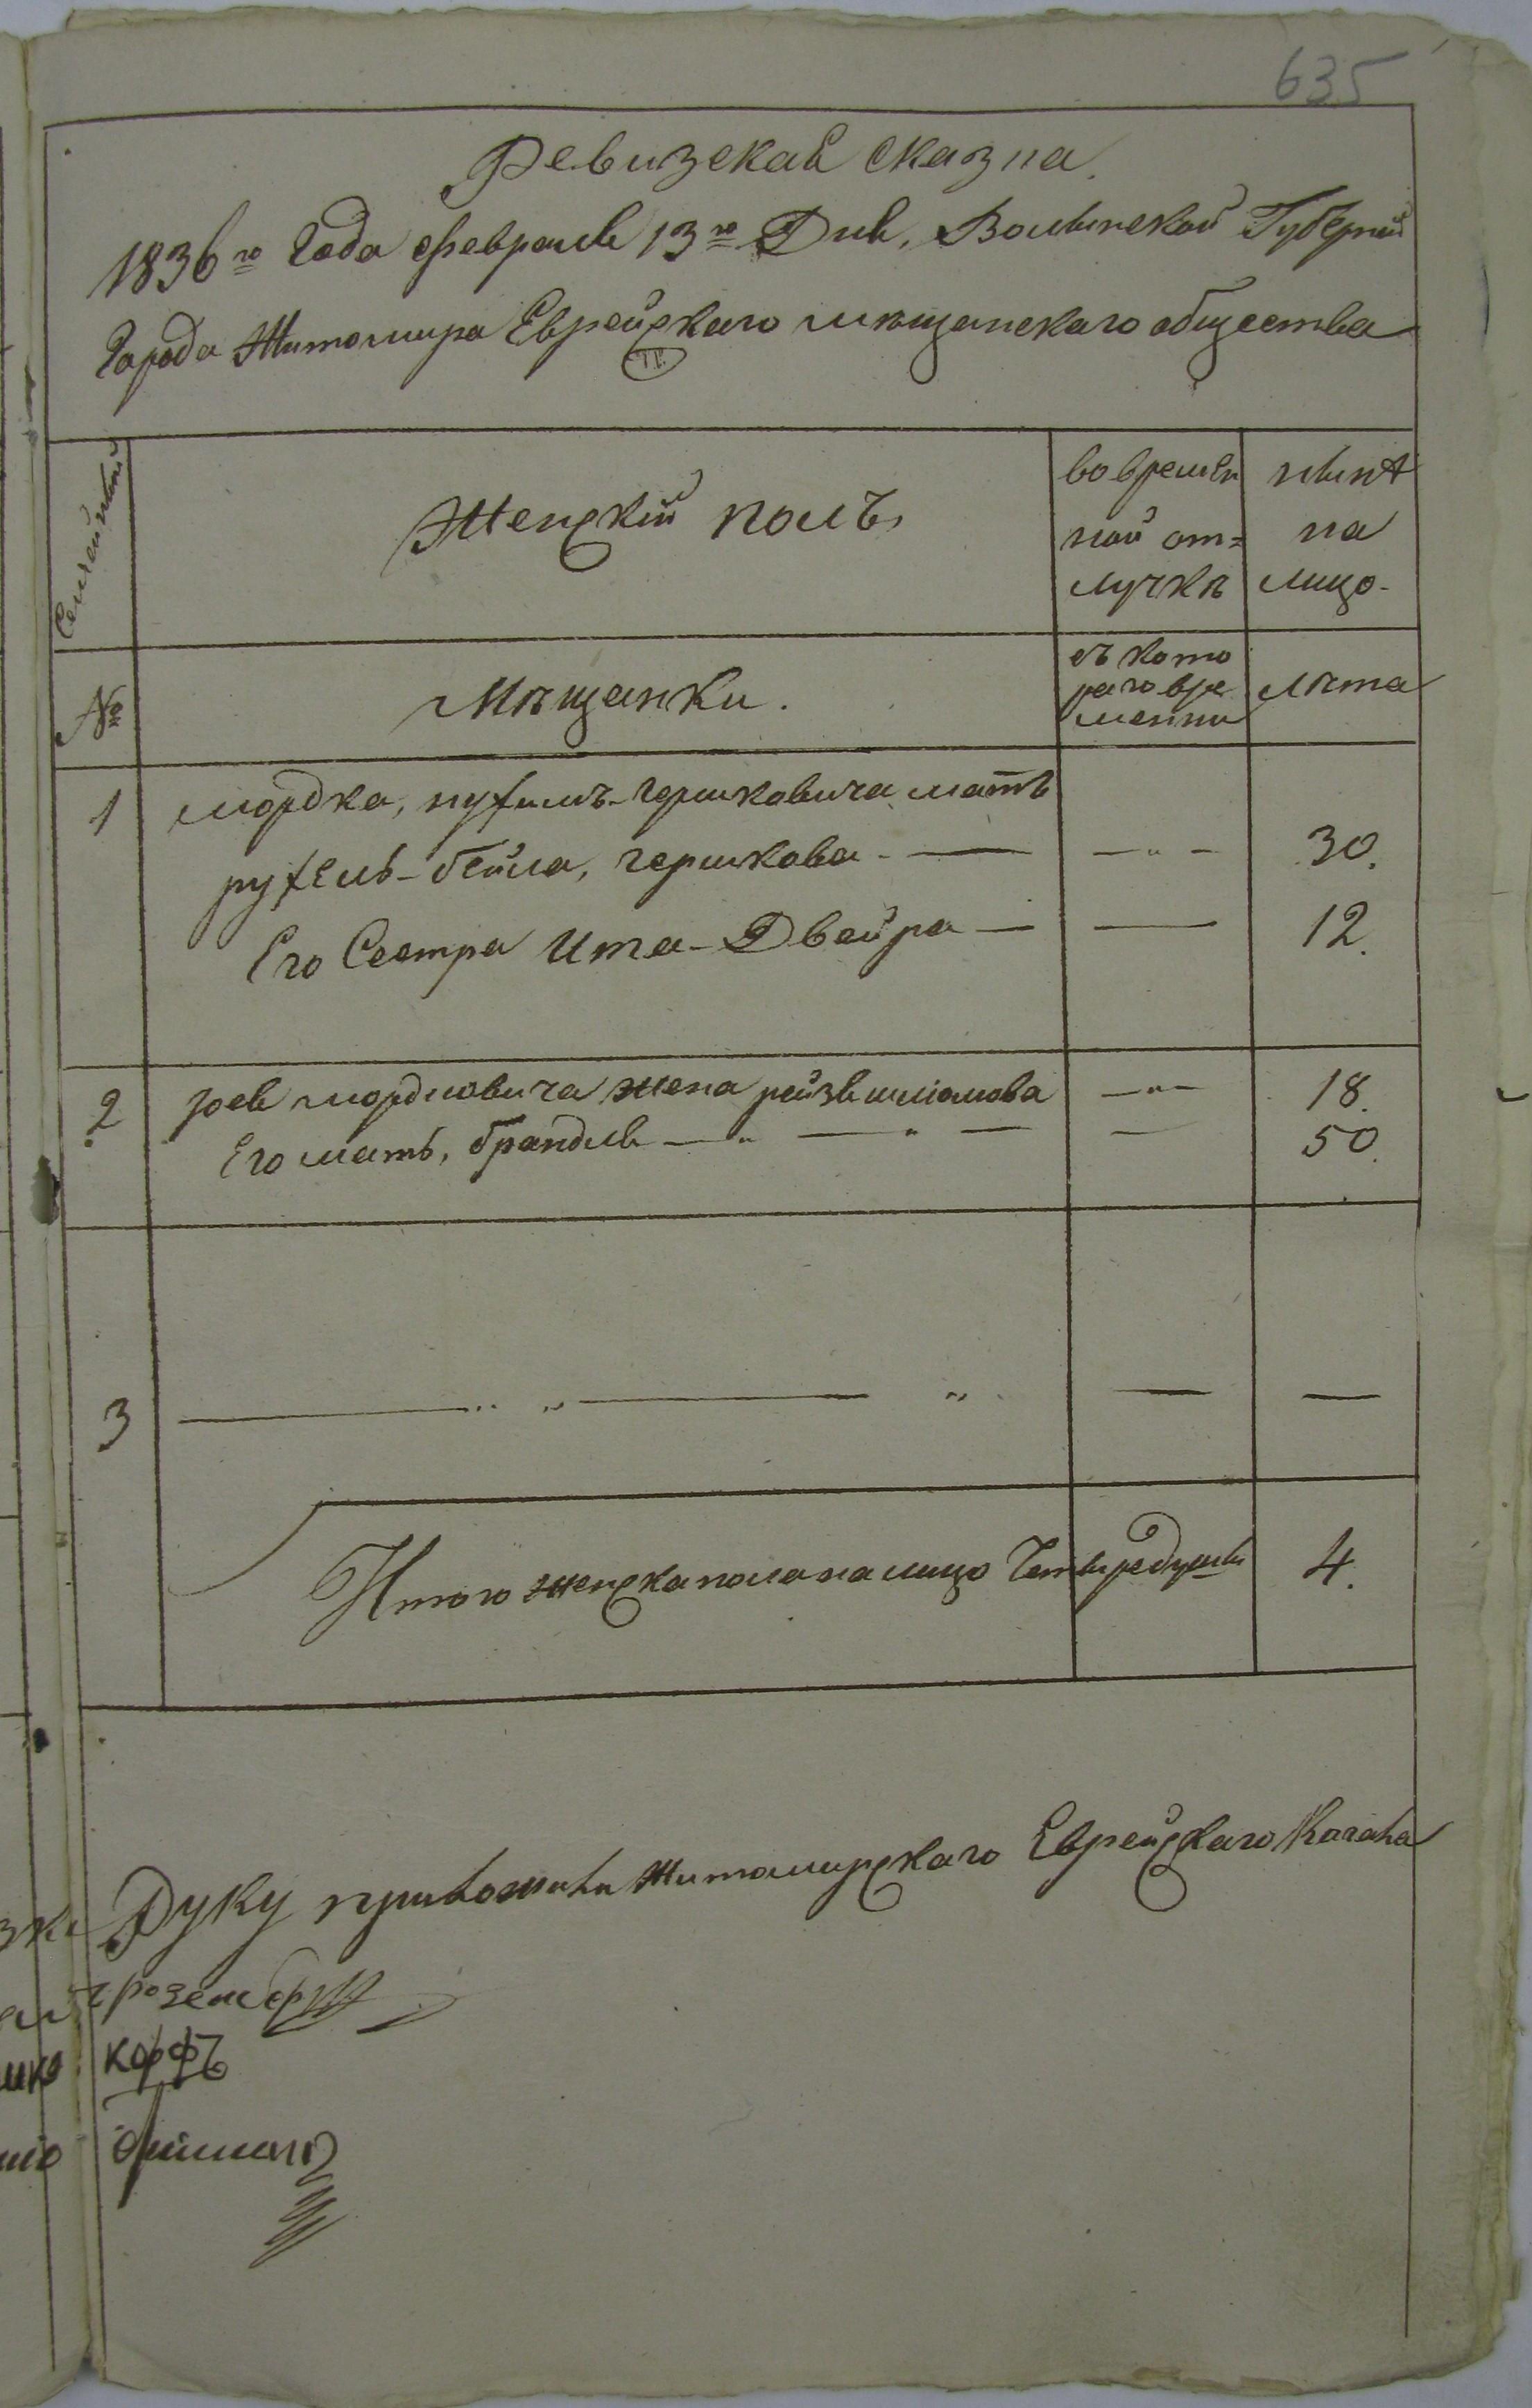 635
Ревизская сказка.
1836го Года февраля 13го Дня, Волынской Губерніи
Города Житомира Еврейскаго мѣщанскаго общества
Семействъ
Женскій полъ
во времен
ной от=
лучкѣ
нынѣ
на
лицо.
№
Мѣщанки.
съ кото
раго вре
менни
лѣта
1
мордка, нухимъ-гершковича мать
рухель-бейла, гершкова — —„— 30.
Его Сестра Ита-Двойра — — 12.
2
зося мордковича жена рейзя шліомова —„— 18.
Его мать, брандля —„—„— — 50.
3 — „ „ — „ — —
Итого женска пола на лицо Четыре души 4.
Руку приложили Житомирскаго Еврейскаго Кагала
корфъ